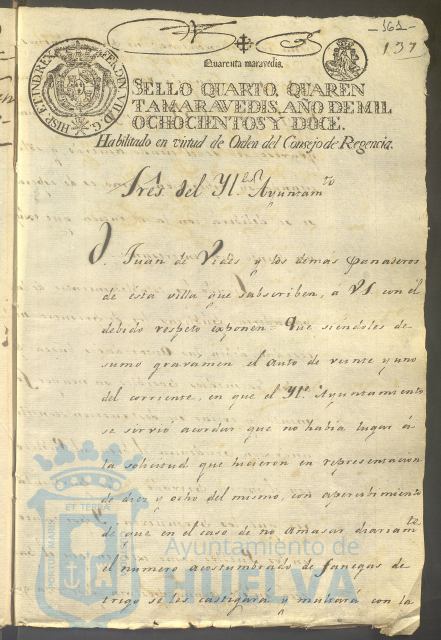 -161-
137
HISP. ET IND. REX FERDIN. VII D. G.
Quarenta maravedis.
SELLO QUARTO, QUAREN
TA MARAVEDIS, AÑO DE MIL
OCHOCIENTOS Y DOCE.
Habilitado en virtud de Orden del Consejo de Regencia.
Sres del Yl. Ayuntamto
D. Juan de Vides y los demas Panaderos
de esta villa que subscriben, a VS. con el
debido respeto exponen: Que siendoles de
sumo gravamen el auto de veinte y uno
del corriente, en que el Yl. Ayuntamiento
se sirvió acordar que no habia lugar á
la solicitud que hicieron en representacion
de diez y ocho del mismo, con apercibimiento
de que en el caso de no amasar diariamte
el numero acostumbrado de fanegas de
trigo se les castigará y multará con la
ET TERRAE
PORTUS MARIS
Ayuntamiento de
HUELVA